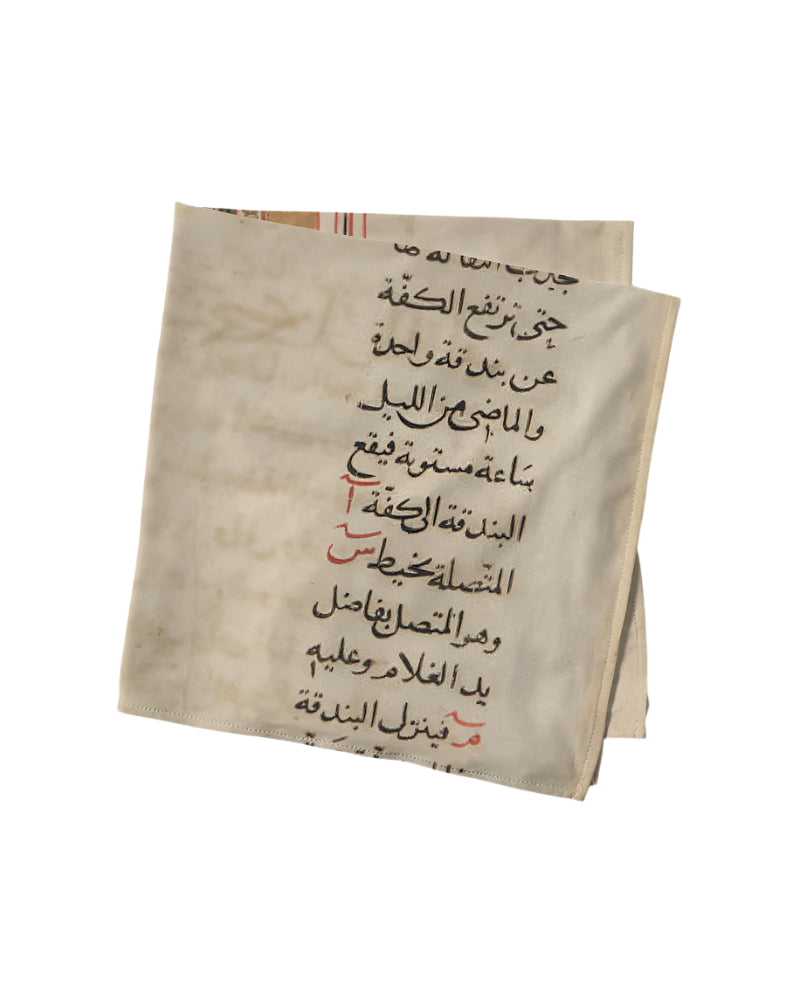 حتى ترتفع الكفّة
عن بندقة واحدة
والماضى من الليل
ساعة مستوية فيقع
البندقة الى كفّة آ
المتّصلة بخيط س
وهو المتصل بفاضل
يد الغلام وعليه
م فينزل البندقة